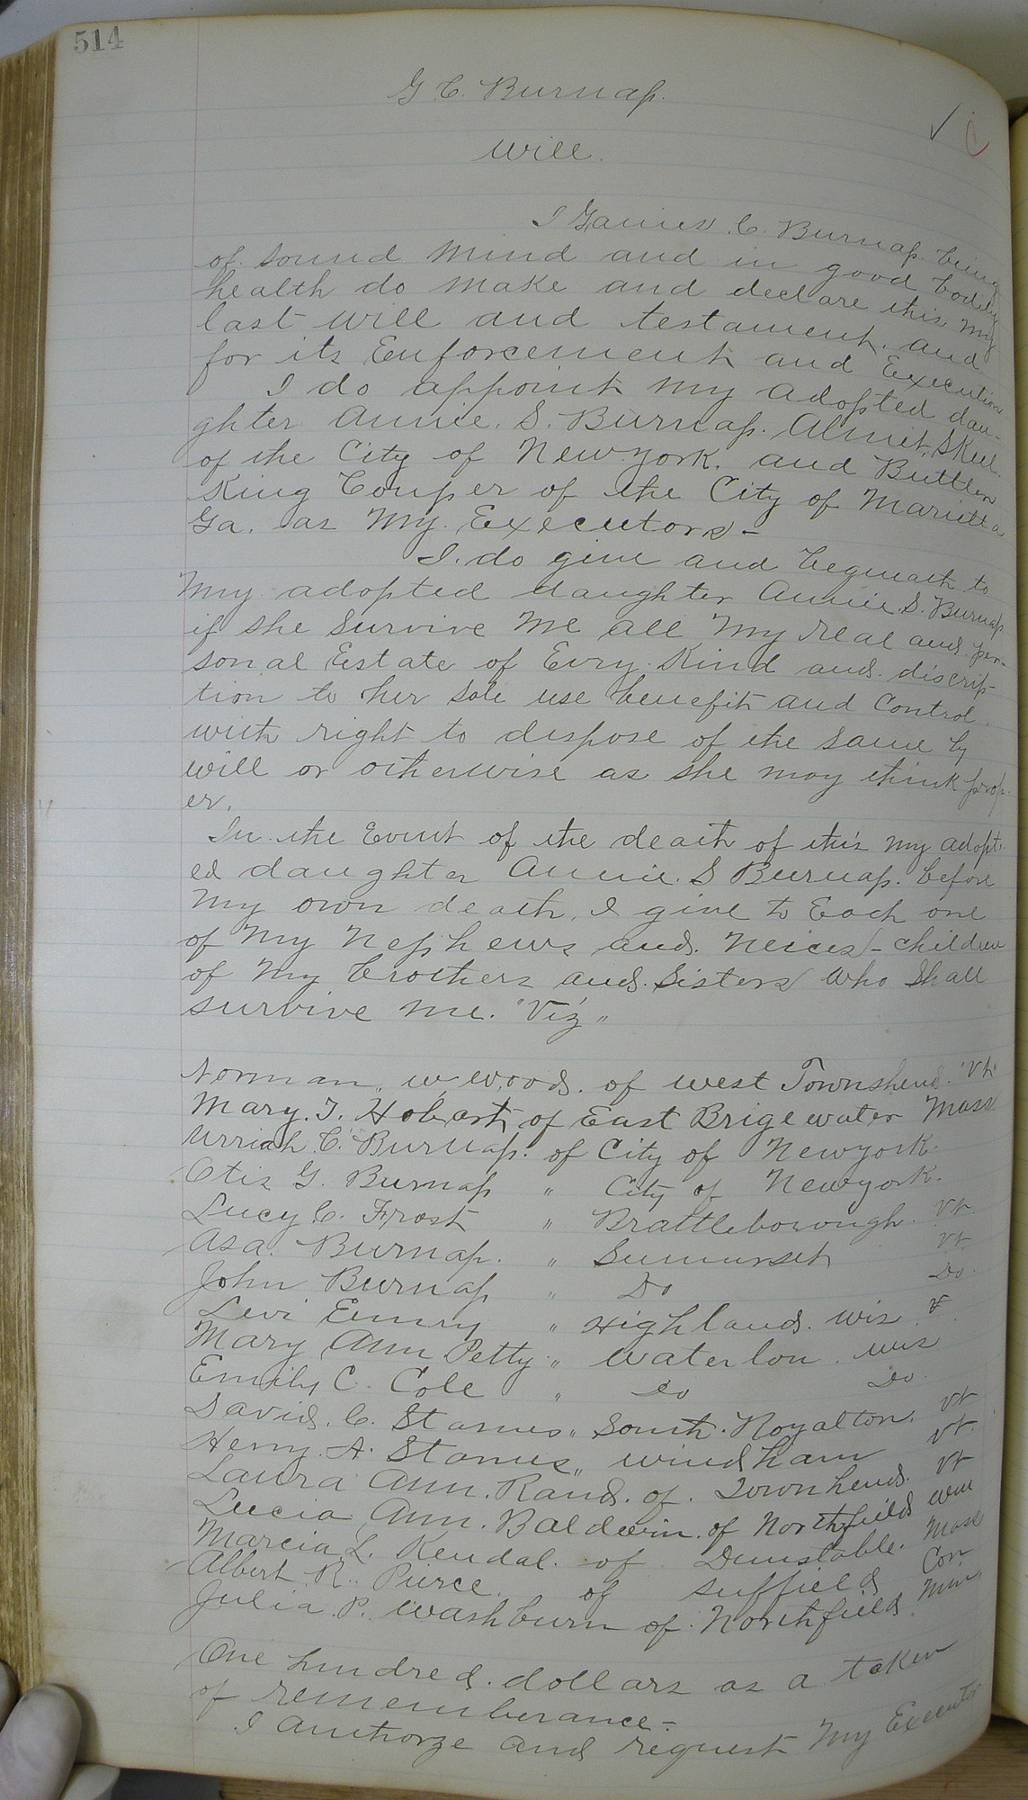 514
G C. Burnap.
will.
I Gaines C. Burnap being
of sound mind and in good bodily
health do make and declare this my
last will and testament. and
for its Enforcement and Execution
I do appoint my adopted dau-
ghter Annie. S. Burnap. Almet. Skeel.
of the City of New york. and Buttler
King Couper of the City of Marietta
Ga. as my Executors-
I. do give and bequeath to
my adopted daughter Annie S. Burnap
if she survive me all my real and per-
sonal Estate of Evry Kind and. discrip-
tion to her sole use benefit and control.
with right to dispose of the same by
will or otherwise as she may think prop-
er.
In the Event of the death of this my adopt-
ed daughter Annie. S Burnap. before
my own death, I give to Each one
of my Nephews and. Neices - children
of my brothers and. sisters who shall
survive me. "Viz"
Norman. W Woods. of west Townshend. Vt.
Mary. T. Hobart of East Brigewater Mass.
Urriah. C. Burnap. of City of Newyork.
Otis G. Burnap " City of Newyork.
Lucy C. Frost " Brattleborough. Vt.
Asa. Burnap. " Summerset Vt.
John Burnap " Do Do.
Levi Emery " Highland. Wis.
Mary Ann Petty " Waterloo. Wis
Emily C. Cole " Do Do.
David. C. Starnes " South. Royalton. Vt
Henry. A. Starnes " windham Vt.
Laura Ann. Rand. of. Townhend. Vt
Lucia Ann. Baldwin. of Northfield
Marcia L. Kendal. of Dunstable. Mass
Albert R. Pierce. of suffield Con.
Julia. P. Washburn of. Northfield. Min.
One hundred. dollars as a token
of rememberance.-
I authorze and request my Executor